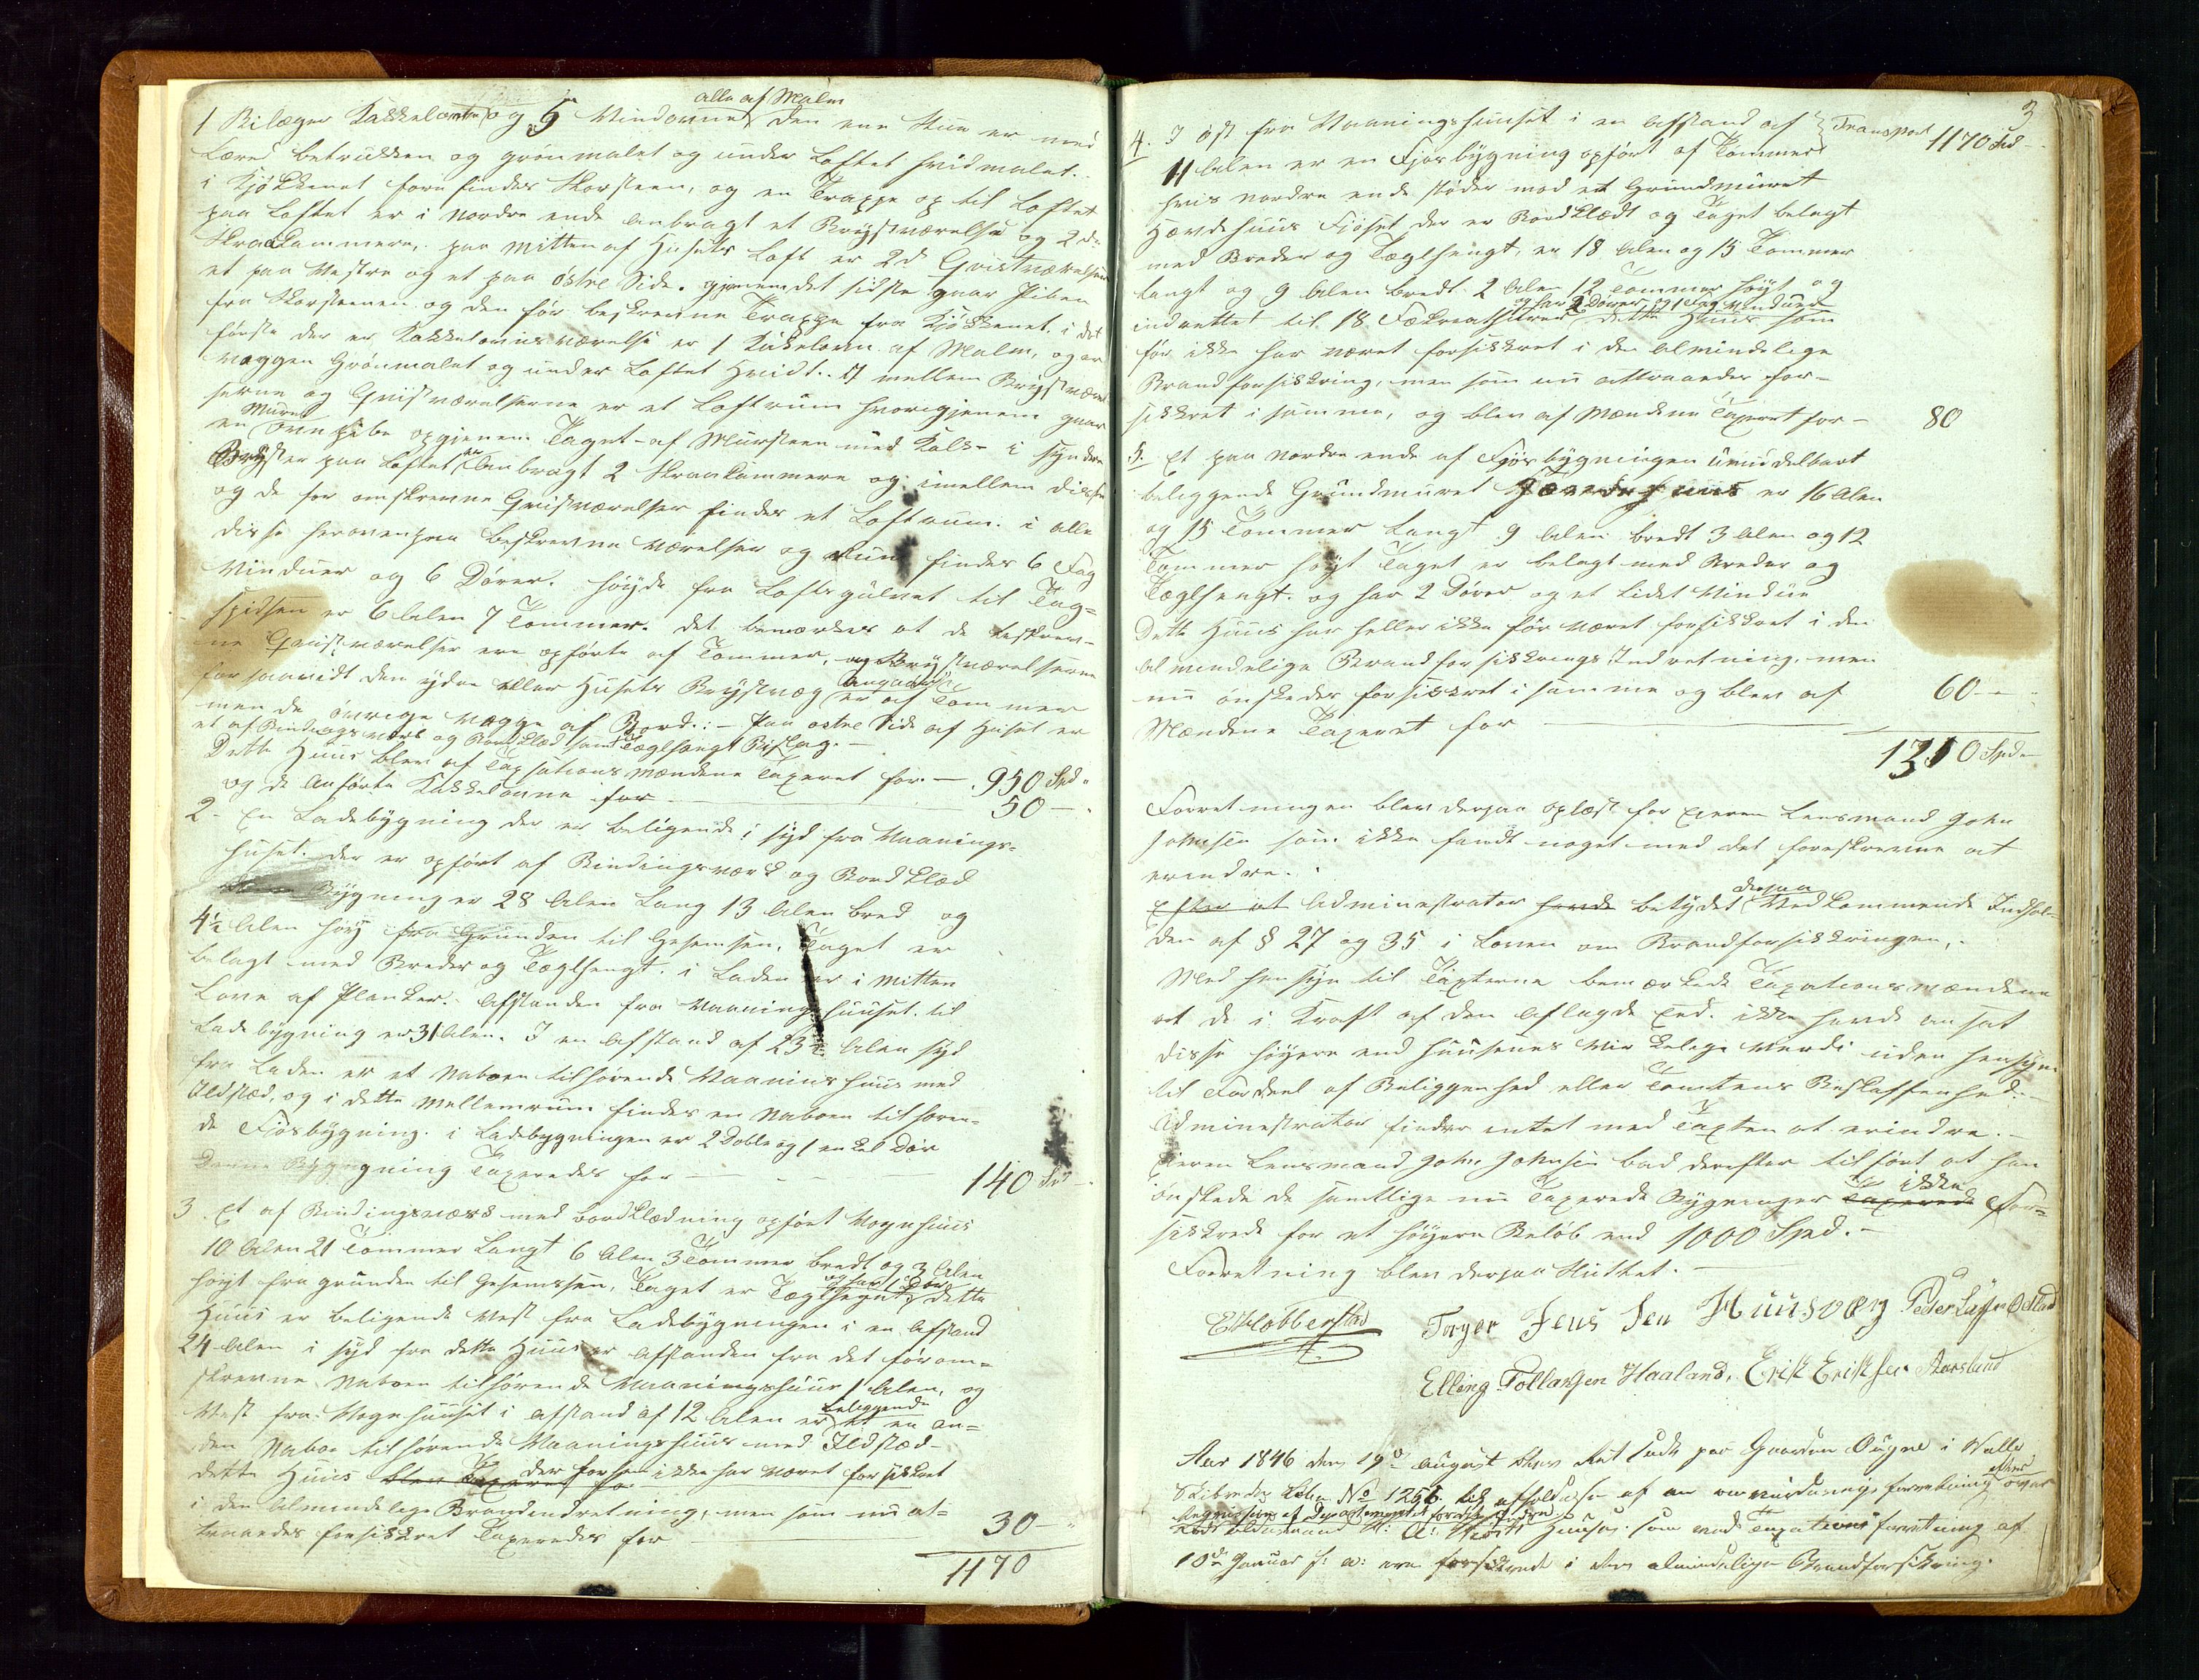 alle af Malm
1 Bilægger Kakkelovn og 5 Vindovne den ene Stue er med
Lærred betrukken og grønmalet og under Loftet hvidmalet.
i Kjøkkenet forefindes Skorsteen, og en Trappe op til Loftet
paa Loftet er i Nordre ende anbragt et Brystværelse og 2de
Skraakammere, paa Mitten af Husets Loft er 2de Qvistværelser
et paa Vestre og et paa østre Side. gjenem det sidste gaar Piben
fra Skorsteenen og den før beskrevne Trappe fra Kjøkkenet. i det
første der er Kakkelovnsværelse er 1 Kakelovn af Malm, og er
væggen Grønmalet og under Loftet Hvidt. mellem Brystværel
serne og Qvistværelserne er et Loftrum hvorigjenem gaar
en Muret ovnpibe opgjenem Taget af Mursteen med Kalk i syndre
Bryst er paa Loftet er anbragt 2 Skraakammere og imellem disse
og de før omskrevne Qvistværelser findes et Loftrum. i alle
disse herovenpaa beskrevne værelser og Rum findes 6 Fag
Vinduer og 6 Dører. høyde fra Loftsgulvet til Tag-
spidsen er 6 Alen 7 Tommer. det bemærkes at de beskrev-
ne Qvistværelser ere opførte af Tømmer, og Brystværelserne
forsaavidt den ydre eller Husets Brystvæg angaar er af Tømmer
men de øvrige vægge af Bord.:- Paa østre Side af Huset er
et af Bindingsverk og Bordklæd samt Tæglhængt Bislag.-
Dette Huus blev af Taxsationsmændene Taxeret for.- 950 Spd.
og de Anførte Kakkelovne for - 50 -
2- En Ladebygning der er beligende i syd fra Vaanings-
huset. der er opført af Bindingsværk og Bordklæd
Bygning er 28 Alen Lang 13 Alen bred og
4½ Alen høy fra Grunden til Gesemsen, Taget er
belagt med Breder og Tæglhengt. i Laden er i Mitten
Love af Planker.- Afstanden fra Vaaningshuuset. til
Ladebygning er 31 Alen. I en Afstand af 23½ Alen syd
fra Laden er et Naboen tilhørende Vaaningshuus med
Ildsted, og i dette Mellemrum findes en Naboen tilhøren-
de Fjøsbygning. i Ladebygningen er 2 Doble og 1 enkel Dør
Denne Bygning Taxeredes for - 140 Spd
3. Et af Bindingsværk med bordklædning opført Vognhuus
10 Alen 21 Tommer Langt 6 Alen 3 Tommer bredt og 3 Alen
høyt fra grunden til Gesemssen, Taget er Tæglhengt og har 1 Dør dette
Huus er beligende Vest fra Ladebygningen i en Afstand
24 Alen i syd fra dette Huus er Afstanden fra det førom-
skrevne Naboen tilhørende Vaaningshuus 1 Alen, og
Vest fra Vognhuuset i afstand af 12 Alen er beliggende et en an-
den Naboe tilhørende Vaaningshuus med Ildsted-
dette Huus blev Taxeret for der forhen ikke har været forsikkret
i den Almindelige Brandindretning, men som nu at-
traaedes forsikkret Taxeredes for - 30 -
1170
3
4. I øst fra Vaaningshuuset i en Afstand af Transport 1170 Spd
11 Alen er en Fjøsbygning opført af Tømmer
hvis nordre ende støder mod et Grundmuuret
Hævdehuus Fjøset der er Bordklædt og Taget belagt
med Breder og Tæglhengt, er 18 Alen og 15 Tommer
langt og 9 Alen bredt 2 Alen 12 Tommer høyt, og
indrettet til 18 Fækreathurer og har 2 Dører og 1 Fag Vinduer dette Huus som
før ikke har været forsikkret i den Almindelige
Brandforsikkring, men som nu attraaedes for-
sikkret i samme, og blev af Mændene Taxeret for - 80
5. Et paa Nordre ende af Fjøsbygningen umiddelbart
beliggende Grundmuret Hævdehuus er 16 Alen
og 15 Tommer langt 9 Alen bredt 3 Alen og 12
Tommer høyt Taget er belagt med Breder og
Tæglhengt. og har 2 Dører og et lidet Vindue
Dette Huus har heller ikke før været forsikkret i den
almindelige Brandforsikkrings Indretning, men
nu ønskedes forsikkret i samme og blev af
Mændene Taxeret for - 60 -
1310 Spd
Forretningen blev derpaa oplæst for Eieren Lensmand John
Johnsen som ikke fandt noget med det foreskrevne at
erindre.
Efter at Administrator havde betydet derpaa Vedkommende Indhol-
den af § 27 og 35 i Loven om Brandforsikkringen,
Med hensyn til Taxterne bemærkede Taxationsmændene
at de i Kraft af den aflagde Eed. ikke havde ansat
disse høyere end huusenes Virkelige Værdi uden hensyn
til Fordeel af Beliggenhed eller Tomtens Beskaffenhed.-
Administrator finder intet med Taxten at erindre.-
Eieren Lensmand John Johnsen bad derefter tilført at han
ønskede de samtlige nu Taxerede Bygninger Taxerede ikke For-
sikkrede for et høyere Beløb end 1000 Spd.-
Forretning blev derpaa Sluttet.
E Hobberstad Torger Jens Sen Huusvæg Peder Larsen Ødeland
Elling Tollaksen Haaland, Erik Eriksen Aarsland
Aar 1846 den 19de August blev Ret sadt paa Gaarden Ougne i Walle
Skibrede Lb. No 1256 til afholdelse af en omvurderings forretning efter over
Reqvisition af Departementet for det Indre
Huuse. som ved Taxationsforretning af
10de Januar s: a: ere forsikrede i den almindelige Brandforsikring.